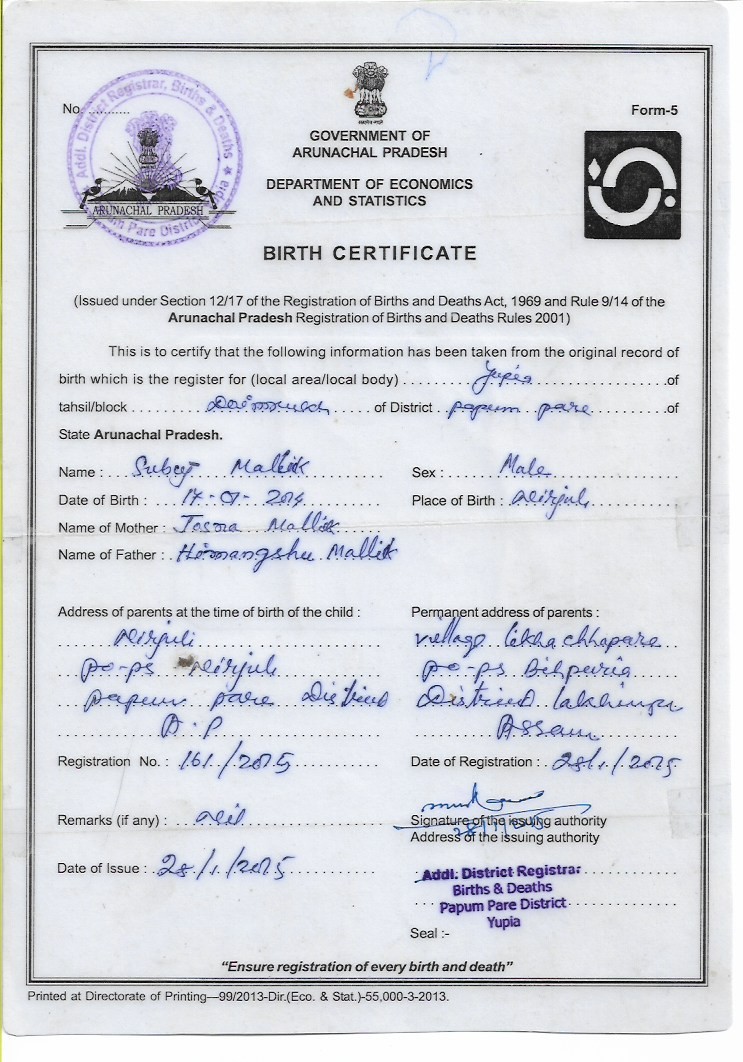 No. ..........
Form-5
Addl. District Registrar, Births & Deaths
ARUNACHAL PRADESH
Papum Pare District
सत्यमेव जयते
GOVERNMENT OF
ARUNACHAL PRADESH
DEPARTMENT OF ECONOMICS
AND STATISTICS
BIRTH CERTIFICATE
(Issued under Section 12/17 of the Registration of Births and Deaths Act, 1969 and Rule 9/14 of the
Arunachal Pradesh Registration of Births and Deaths Rules 2001)
This is to certify that the following information has been taken from the original record of
birth which is the register for (local area/local body) Yupia of
tahsil/block Doimukh of District papum pare of
State Arunachal Pradesh.
Name : Mallik Sex : Male
Date of Birth : Place of Birth : Nirjuli
Name of Mother : Mallik
Name of Father : Himangshu Mallik
Address of parents at the time of birth of the child : Permanent address of parents :
Nirjuli village
po-ps Nirjuli po-ps Bihpuria
papum pare District District
A.P Assam
Registration No. : 161/2015 Date of Registration : 28/1/2015
Remarks (if any) : Nil Signature of the issuing authority
Address of the issuing authority
Date of Issue : 28/1/2015
Addl. District Registrar
Births & Deaths
Papum Pare District
Yupia
Seal :-
"Ensure registration of every birth and death"
Printed at Directorate of Printing—99/2013-Dir.(Eco. & Stat.)-55,000-3-2013.